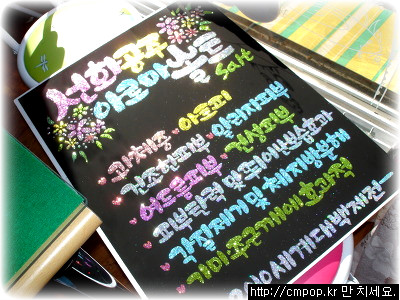 선화공주
아로마솔트
Salt
·과체중 ·아토피
건조한피부 ·알러지피부
·여드름피부 ·건성피부
피부탄력 및
각질제거 및 체지방분해
기미 주근깨에 효과적
대백제전
http://cmpop.kr 만 치세요.